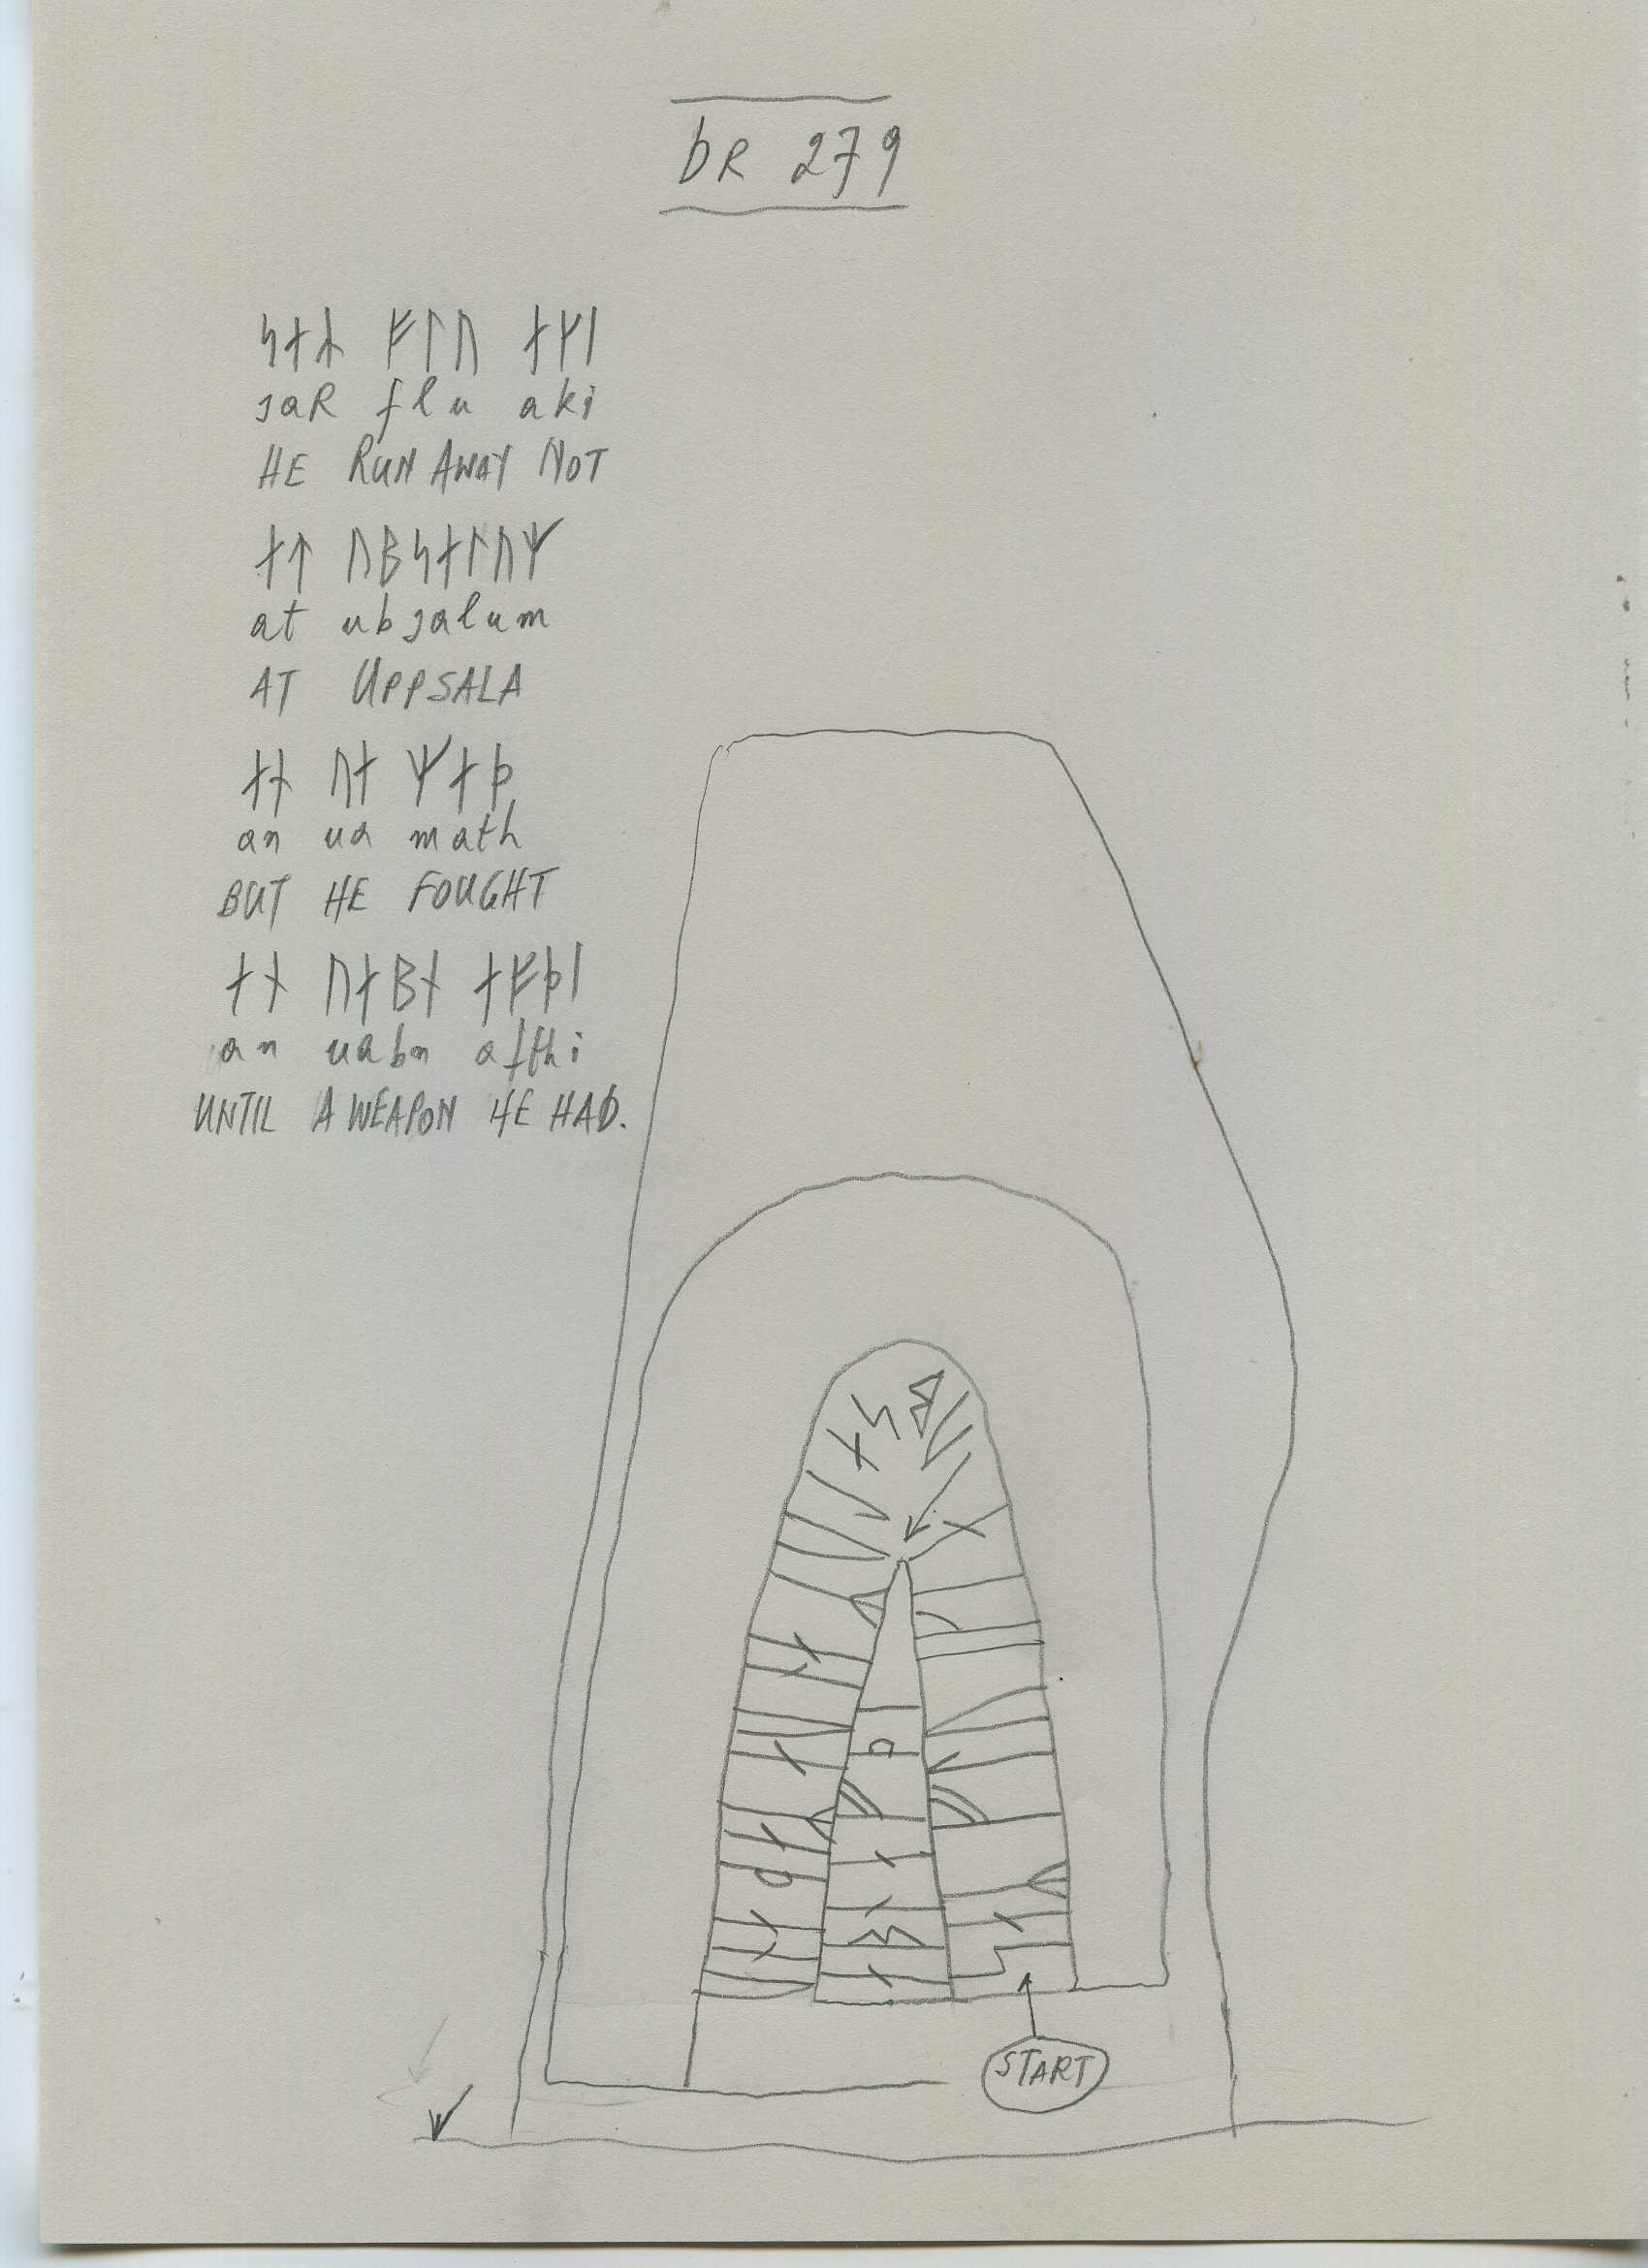 DR 279
ᛋᛅᛦ ᚠᛚᚢ ᛅᚴᛁ
saR flu aki
HE RUN AWAY NOT
ᛅᛏ ᚢᛒᛋᛅᛚᚢᛘ
at ubsalum
AT UPPSALA
ᛅᚾ ᚢᛅ ᛘᛅᚦ
an ua math
BUT HE FOUGHT
ᛅᚾ ᚢᛅᛒᚾ ᛅᚠᚦᛁ
an uabn afthi
UNTIL A WEAPON HE HAD.
START